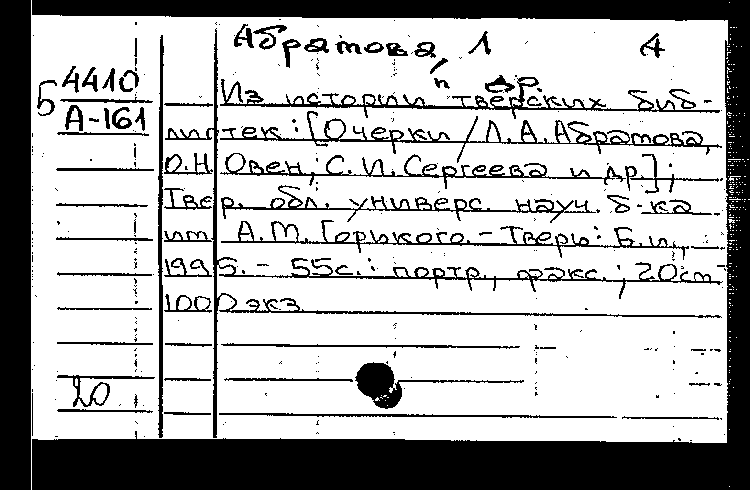 Абратова 1 А
Б 4410
А-161
Из истории тверских биб-
лиотек: [Очерки / Л. А. Абратова,
О.Н. Овен, С. И. Сергеева и др];
Твер. обл. универс. науч. б-ка
им. А.М. Горького. - Тверь: Б.и.,
1995. - 55с.: портр., факс.; 20см
1000экз
20